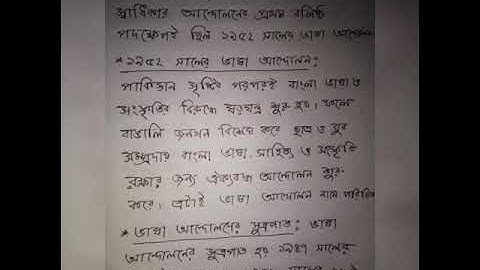 স্বাধিকার আন্দোলনের প্রথম বলিষ্ঠ
পদক্ষেপই ছিল ১৯৫২ সালের ভাষা আন্দোলন
* ১৯৫২ সালের ভাষা আন্দোলন:
পাকিস্তান সৃষ্টির পরপরই বাংলা ভাষা ও
সংস্কৃতির বিরুদ্ধে ষড়যন্ত্র শুরু হয়। ফলে
বাঙালি জনগন বিশেষ করে ছাত্র ও যুব
সম্প্রদায় বাংলা ভাষা, সাহিত্য ও সংস্কৃতি
রক্ষার জন্য ঐক্যবদ্ধ আন্দোলন শুরু
করে। এটাই ভাষা আন্দোলন নামে পরিচিত
* ভাষা আন্দোলনের সুত্রপাত: ভাষা
আন্দোলনের সুত্রপাত হয় ১৯৪৭ সালের